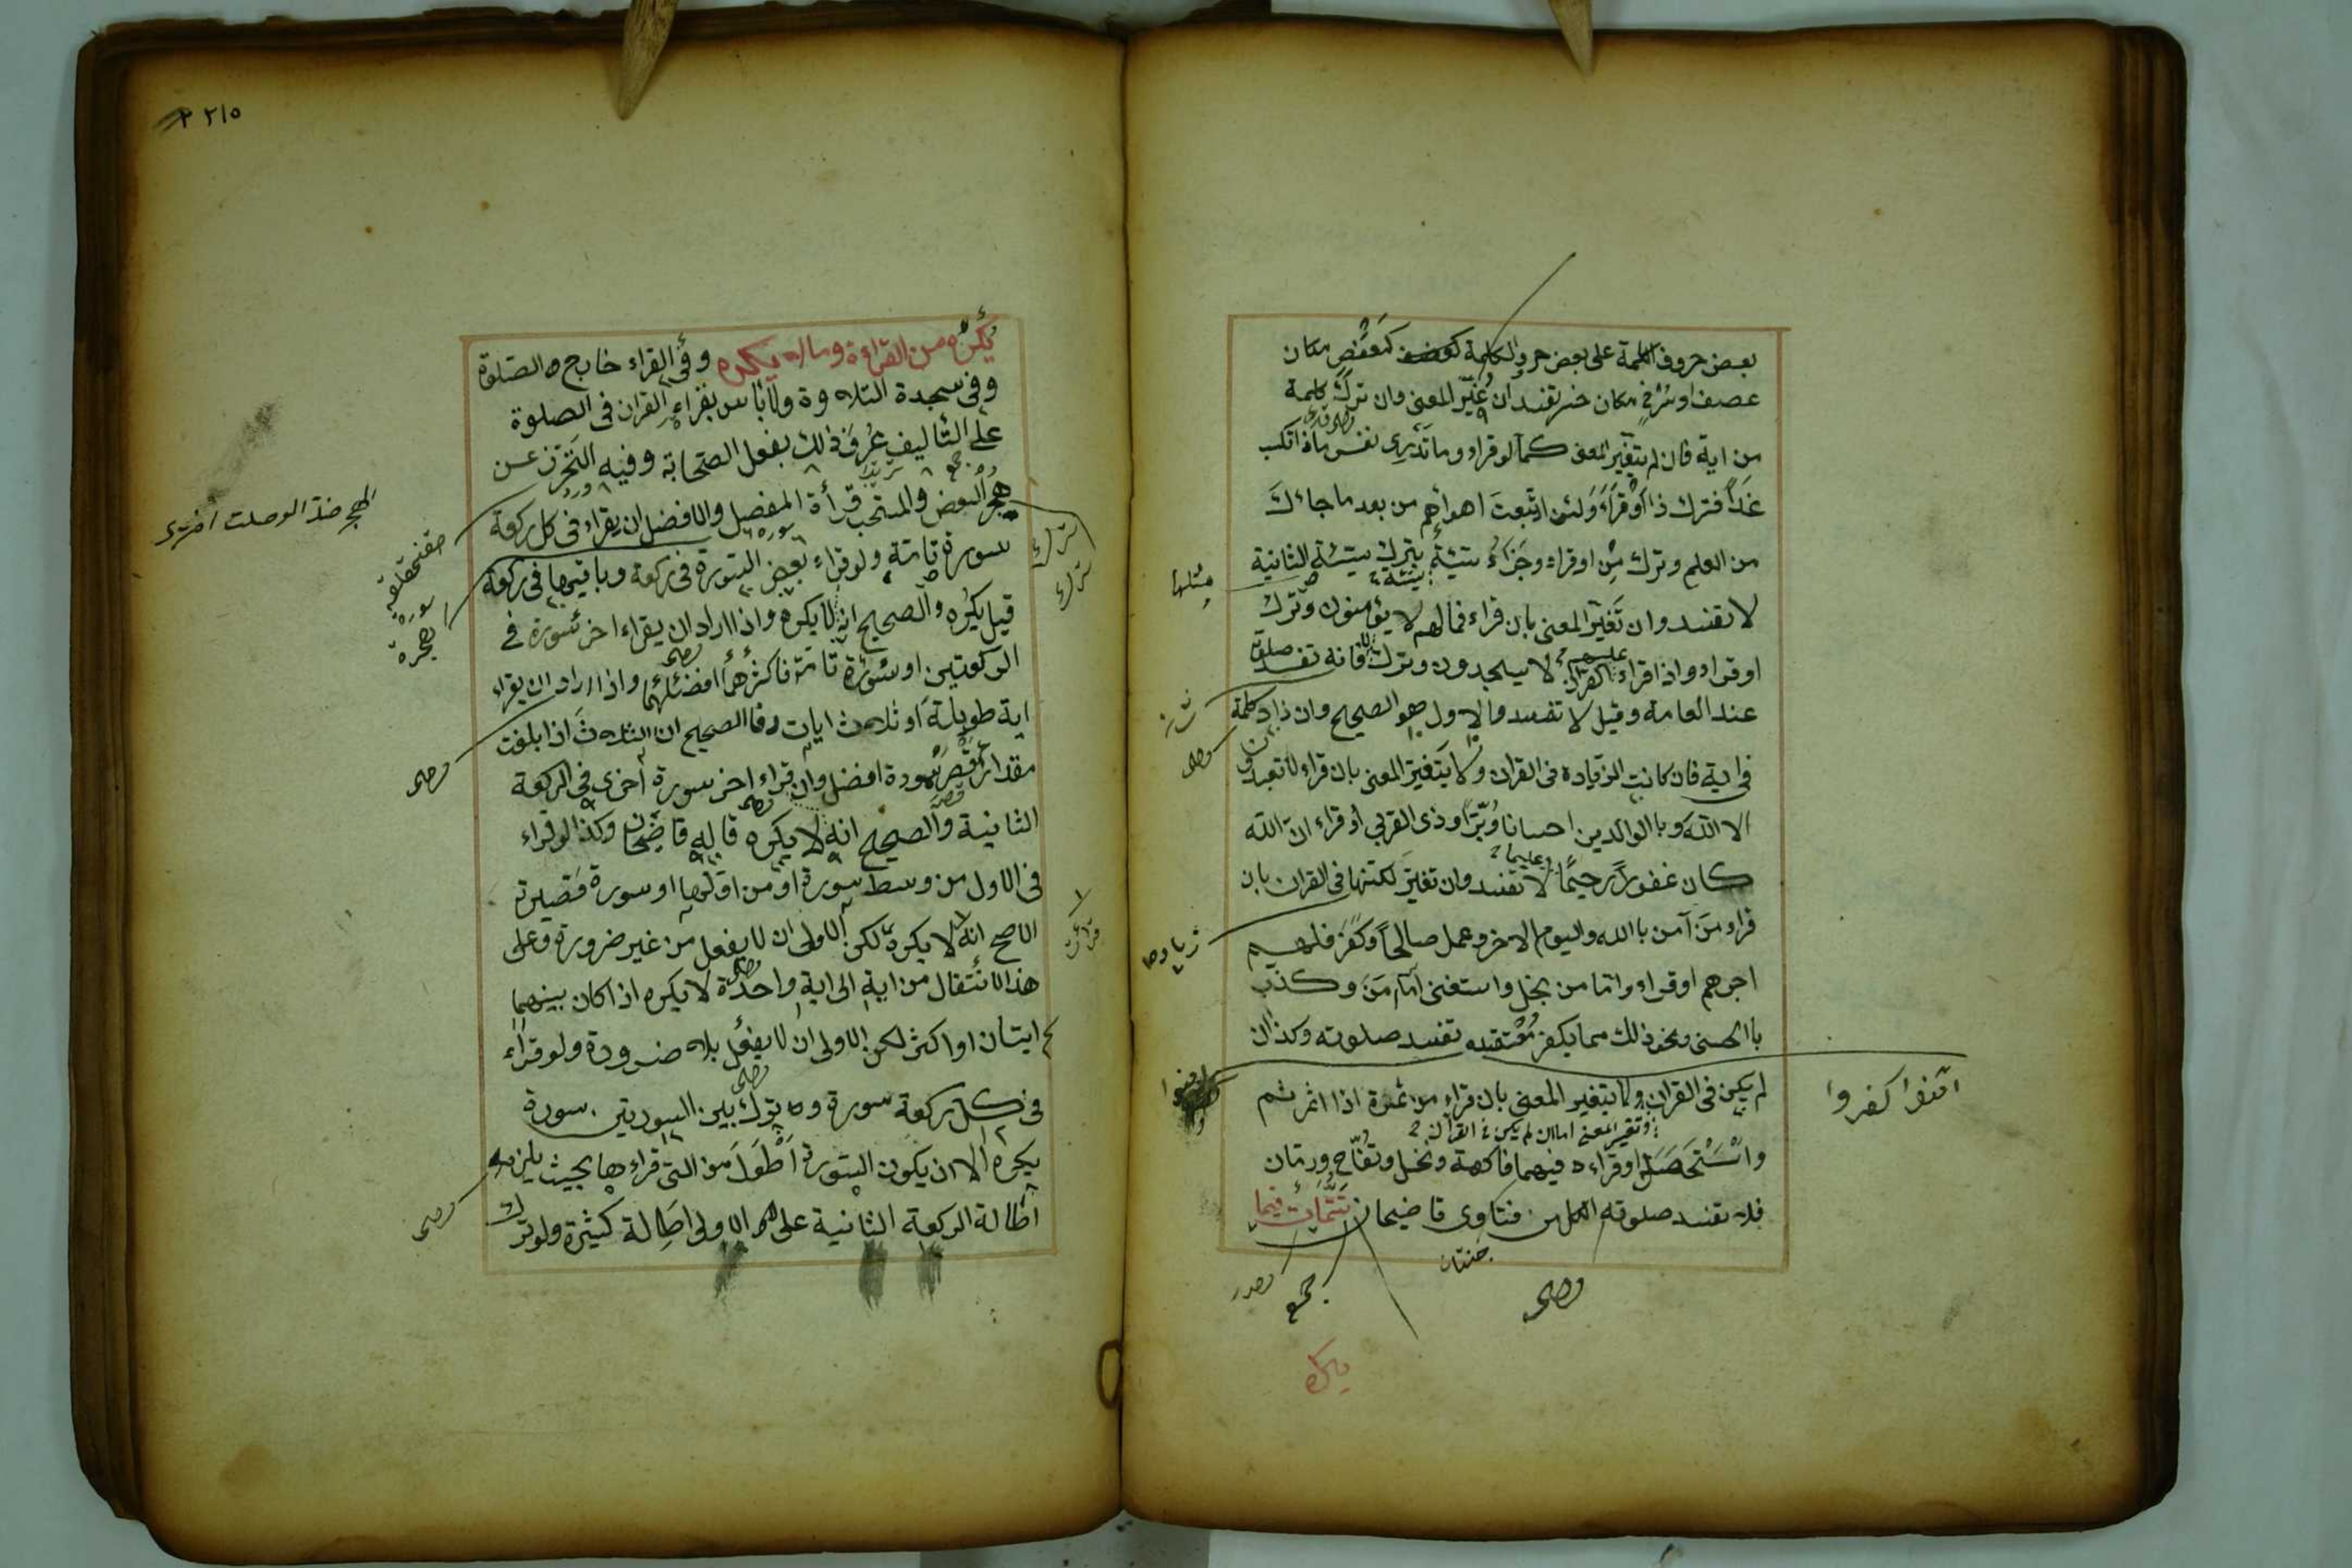 بعض حروف الكلمة على بعض حروف الكلمة كعفص مكان
عصف او سرف مكان خسر تفسد ان غيّر المعنى وان ترك كلمة
من اية فان لم يتغير المعنى كما لو قراء وما تدرى نفس ماذا تكسب
غدًا فترك ذا او قراء ولئن اتبعت اهوائهم من بعد ما جائك
من العلم وترك مِن او قراء وجزاؤ سيّئةٍ بترك سيّئة الثانية
مثلها
لا تفسد وان تغيّر المعنى بان قراء فما لهم لا يؤمنون وترك لا
او قراء واذا قراء عليهم القران لا يسجدون وترك لا فانه تفسد صلوته
عند العامة وقيل لا تفسد والاول هو الصحيح وان زاد كلمة
فى اية فان كانت الزيادة فى القران ولا يتغير المعنى بان قراء لا تعبدون
الا الله وبالوالدين احسانا وبرّا وذى القربى او قراء انّ الله
كان غفورًا رحيمًا وعليما لا تفسد وان تغيّر لكنّها فى القران بان
قراء ومن آمن باالله واليوم الاخر وعمل صالحًا وكفر فلهم
اجرهم او قراء واما من بخل واستغنى آمن وكذّب
باالحسنى ونحو ذلك مما يكفر مُعتقده تفسد صلوته وكذا ان
آمنوا كفروا
لم يكن فى القران ولا يتغير المعنى بان قراء من ثمرة اذا اثمر ثم
وتغير المعنى اما ان لم يكن فى القران
واستحصد او قراء فيهما فاكهة ونخل وتفّاح ورمّان
فلا تفسد صلوته الكل من فتاوى قاضيخان تتمّات فيما
جنتان
مصدر
جمع
وصلى
يكره
٢١٥
يُكره من القراءة وما لا يكره وفى القراء خارج الصلوة
وفى سجدة التلاوة ولا باس بقراء القران فى الصلوة
على التأليف عُرِفَ ذلك بفعل الصحابة وفيه التحرّز عن
هجر البعض والمستحب قرأة المفصل والافضل ان يقراء فى كل ركعة
سورة تامّة ولو قراء بعض السورة فى ركعة وباقيها فى ركعة
قيل يكره والصحيح انه لا يكره واذا اراد ان يقراء اخر سورة فى
الركعتين او سورة تامّة فاكثرهما افضلهما واذا اراد ان يقراء
اية طويلة او ثلاث ايات فالصحيح ان الثلاث اذا بلغت
مقدار اقصر سورة افضل وان قراء اخر سورة اخرى فى الركعة
الثانية والصحيح انه لا يكره قاله قاضيخان وكذا لو قراء
فى الاول من وسط سورة او من اوّلها او سورة قصيرة
الاصح انه لا يكره لكن الاولى ان لا يفعل من غير ضرورة وعلى
هذا الانتقال من اية الى اية واحدة لا يكره اذا كان بينهما
ايتان او اكثر لكن الاولى ان لا يفعل بلا ضرورة ولو قراء
فى كل ركعة سورة وترك بين السورتين سورة
يكره الا ان يكون السورة اطول من التى قراءها بحيث يلزم
اطالة الركعة الثانية على الاولى اطالة كثيرة ولو ترك